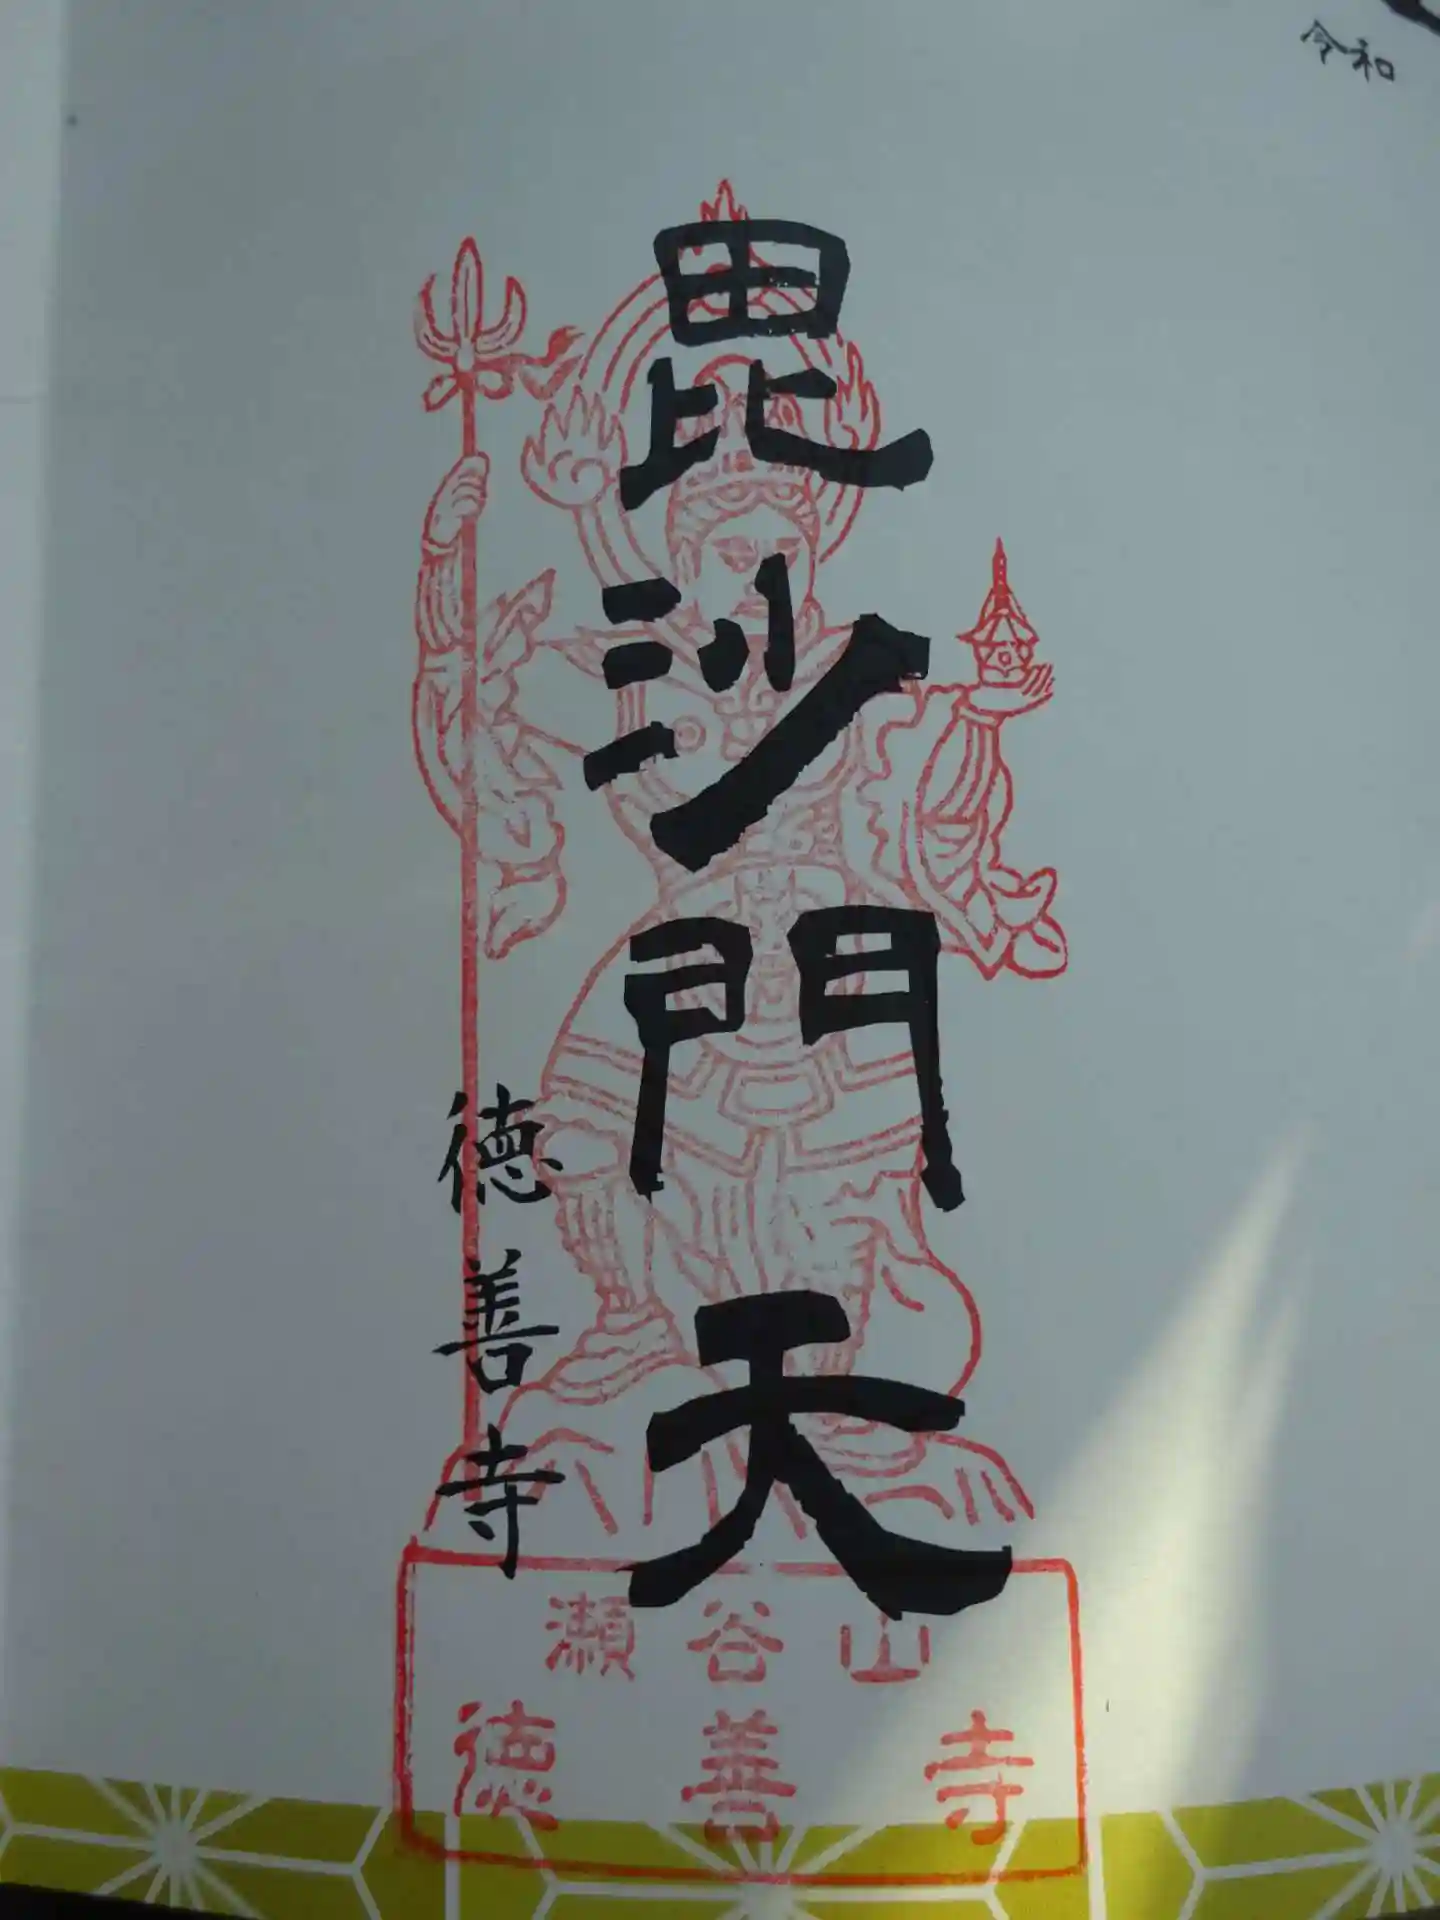 令和
毘沙門天
徳善寺
瀬谷山
徳善寺